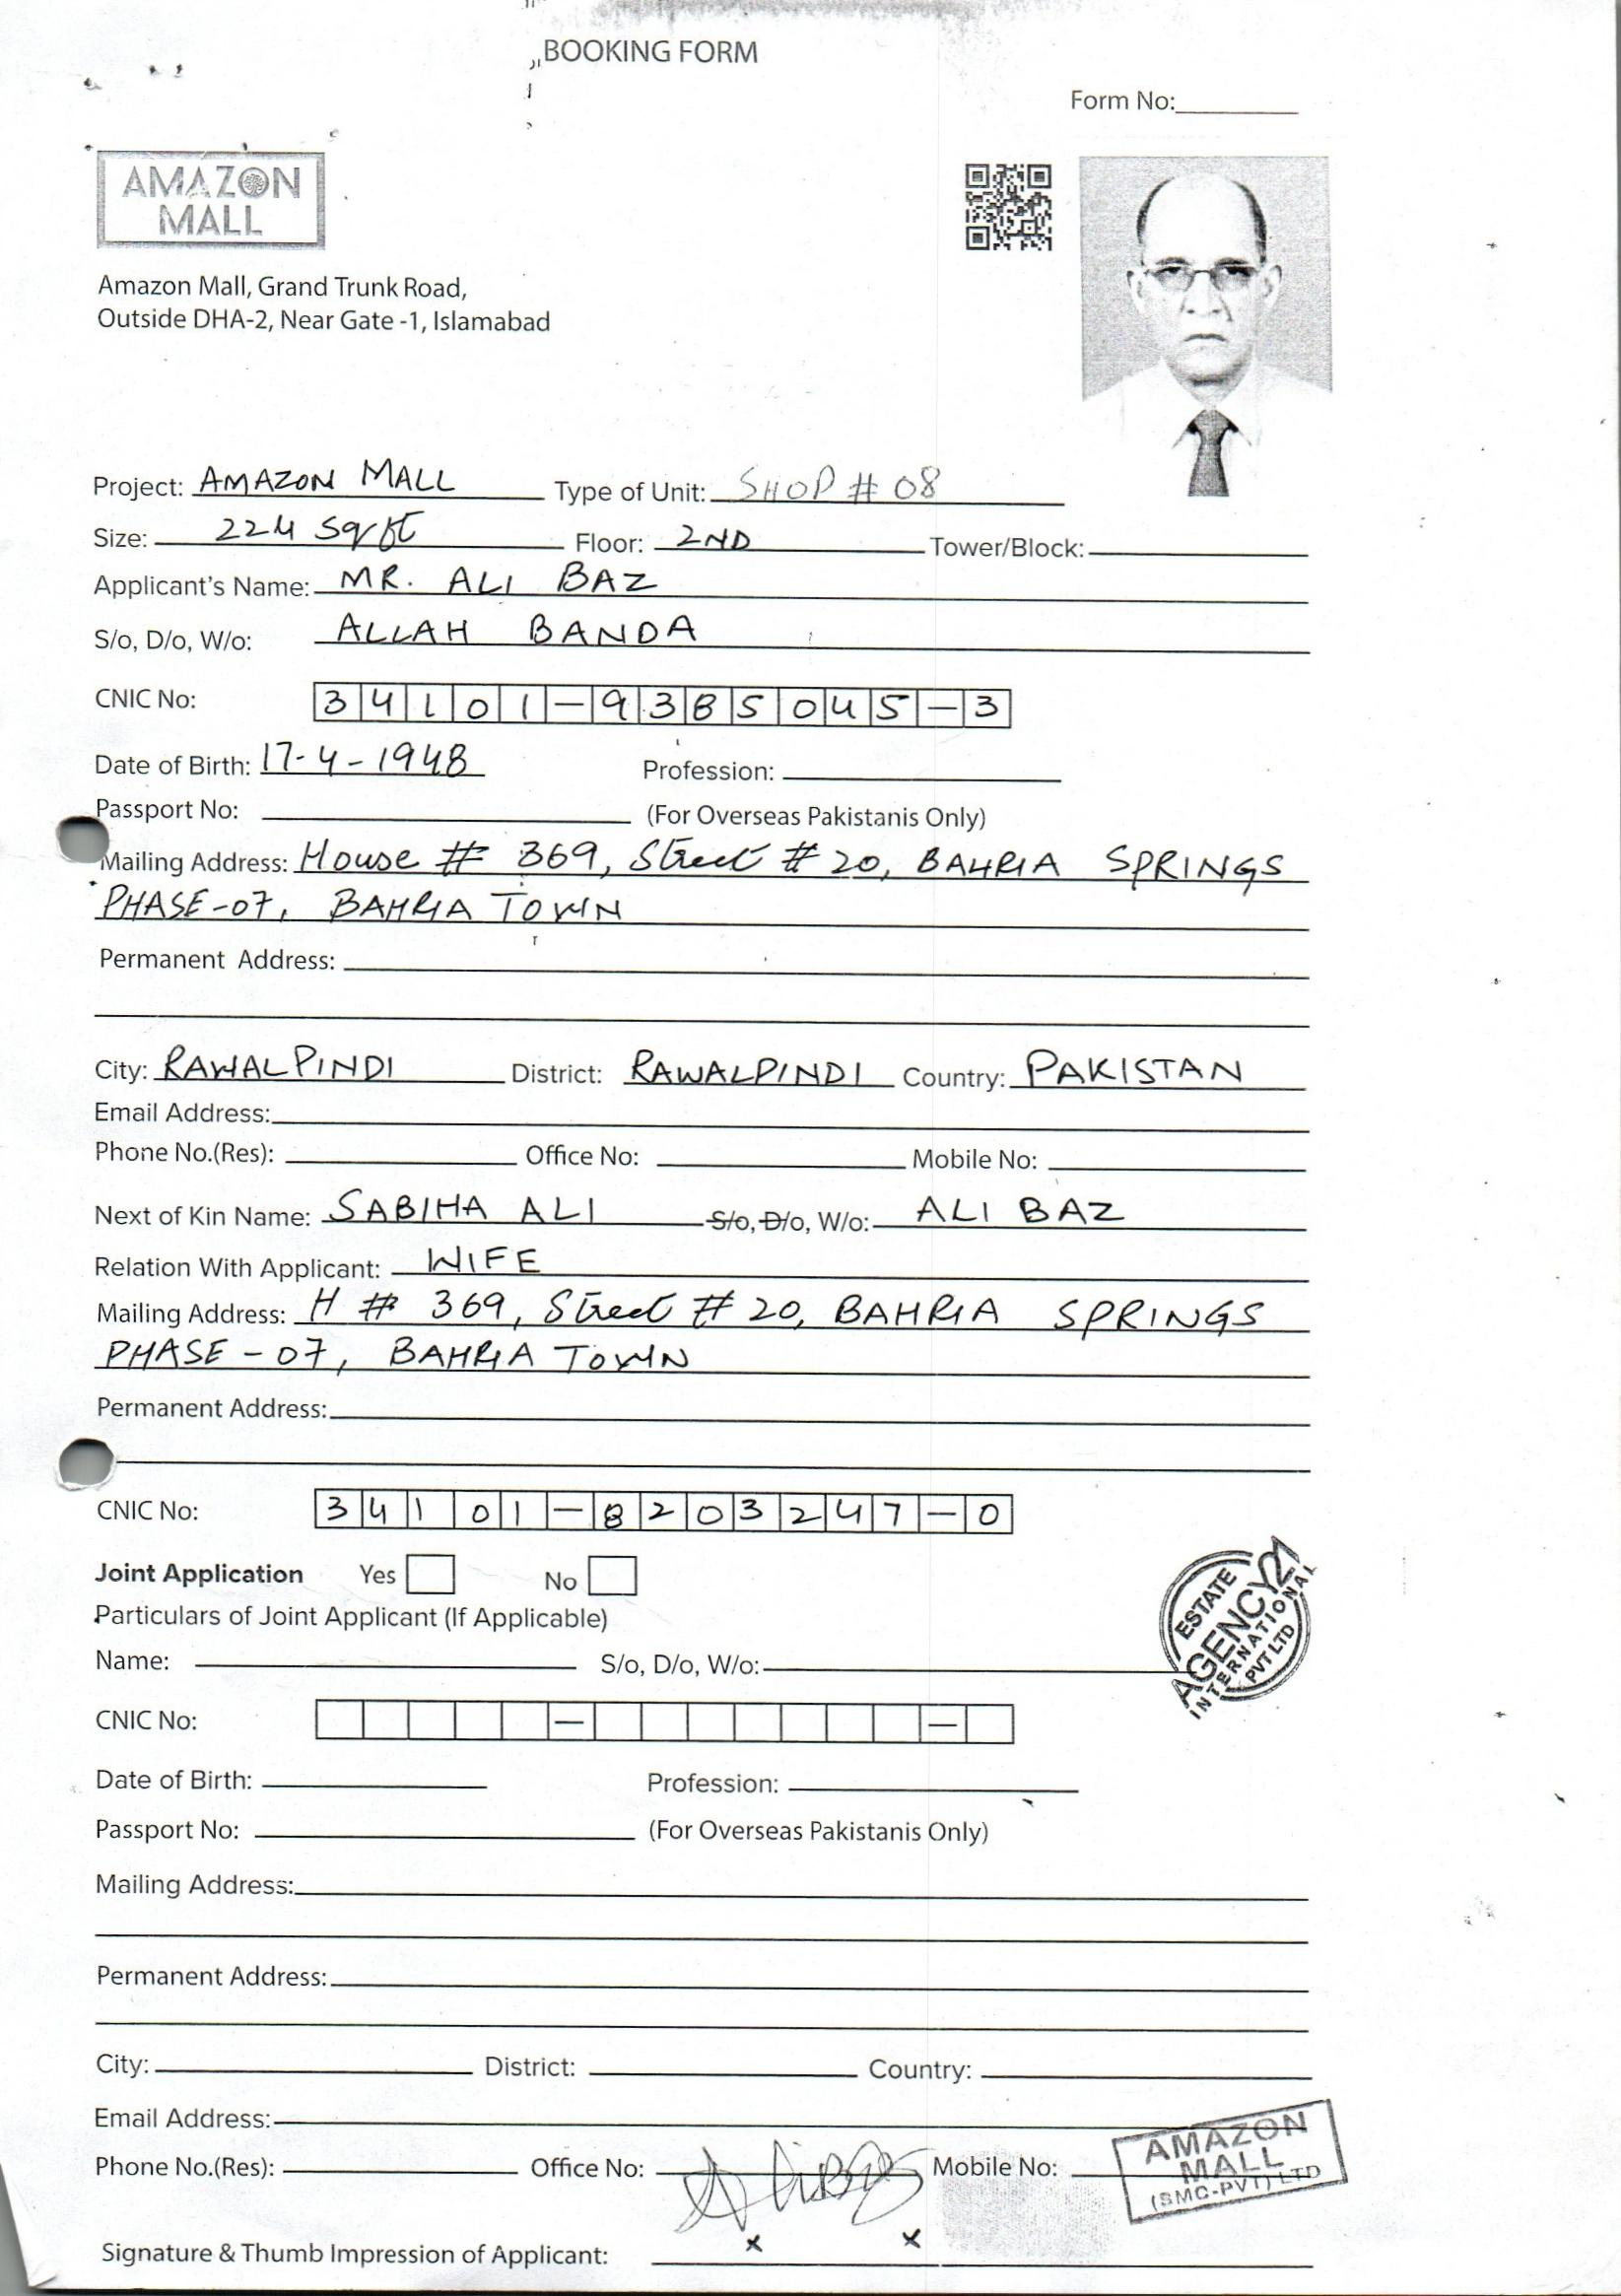 BOOKING FORM
Form No:
AMAZON
MALL
Amazon Mall, Grand Trunk Road,
Outside DHA-2, Near Gate -1, Islamabad
Project: AMAZON MALL Type of Unit: SHOP # 08
Size: 224 Sqft Floor: 2ND Tower/Block:
Applicant's Name: MR. ALI BAZ
S/o, D/o, W/o: ALLAH BANDA
CNIC No: 34101-9385045-3
Date of Birth: 17-4-1948 Profession:
Passport No: (For Overseas Pakistanis Only)
Mailing Address: House # 369, Street # 20, BAHRIA SPRINGS
PHASE-07, BAHRIA TOWN
Permanent Address:
City: RAWALPINDI District: RAWALPINDI Country: PAKISTAN
Email Address:
Phone No.(Res): Office No: Mobile No:
Next of Kin Name: SABIHA ALI S/o, D/o, W/o: ALI BAZ
Relation With Applicant: WIFE
Mailing Address: H # 369, Street # 20, BAHRIA SPRINGS
PHASE-07, BAHRIA TOWN
Permanent Address:
CNIC No: 34101-8203247-0
Joint Application Yes No
Particulars of Joint Applicant (If Applicable)
Name: S/o, D/o, W/o:
ESTATE
AGENCY21
INTERNATIONAL
PVT LTD
CNIC No: - -
Date of Birth: Profession:
Passport No: (For Overseas Pakistanis Only)
Mailing Address:
Permanent Address:
City: District: Country:
Email Address:
Phone No.(Res): Office No: Mobile No:
AMAZON
MALL
(SMC-PVT) LTD
Ali Baz
x x
Signature & Thumb Impression of Applicant: